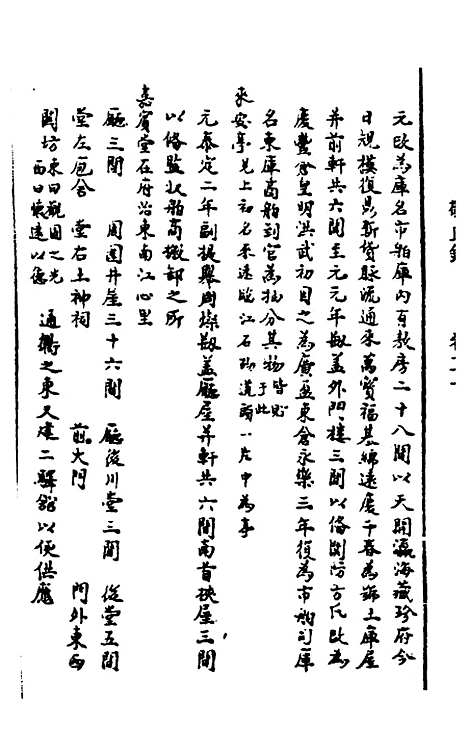 元改為庫名市舶庫內有敖房二十八間以天開瀛海藏珍府今
日規模復鼎新貨脉流通來萬寶福基綿遠慶千春為號土庫屋
并前軒共六間至元元年敬蓋外門樓三間以俻関防方氏改為
慶豐倉皇明洪武初目之為廣盈東倉永樂三年復為市舶司庫
名東庫商舶到官為抽分其物皆貯于此
來安亭見上初名來遠臨江石砌道頭一片中為亭
元泰定二年副提舉周燦敬蓋廳屋并軒共六間南首挾屋三間
以俻監收舶商搬卸之所
嘉賓堂在府治東南江心里
廳三間 周圍井屋三十六間 廳後川堂三間 後堂五間
堂左庖舍 堂右土神祠 前大門 門外東西
関坊東曰觀國之光西曰懷遠以德 通衢之東又建二驛館以便供應